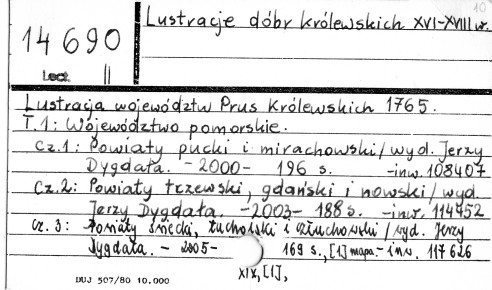 10
Lustracje dóbr królewskich XVI-XVIII w.
14 690
Lect. II
Lustracja województw Prus Królewskich 1765.
T.1: Województwo pomorskie.
Cz.1: Powiaty pucki i mirachowski / wyd. Jerzy
Dygdała. - 2000 - 196 s. - inw. 108407
Cz.2: Powiaty tczewski, gdański i nowski / wyd.
Jerzy Dygdała. - 2003 - 188 s. - inw. 114452
Cz. 3: Powiaty świecki, tucholski i człuchowski / wyd. Jerzy
Dygdała. - 2005 - 169 s., [1] mapa. - inw. 117626
XIX, [1],
DUJ 507/80 10.000